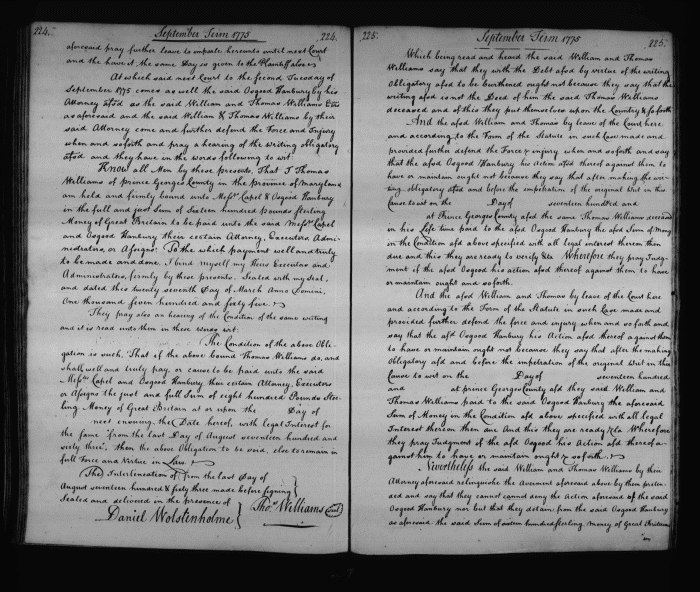 224. September Term 1775 224.
aforesaid pray further leave to imparle hereunto until next Court
and the have it. the same Day is given to the Plaintiff also
At which said next Court to the second Tuesday of
September 1775 comes as well the said Osgood Hanbury by his
Attorney afsd as the said William and Thomas Williams
as aforesaid and the said William & Thomas Williams by their
said Attorney come and further defend the Force and Injury
when and soforth and pray a hearing of the writing obligatory
afsd and they have in the words following to wit
Know all Men by these presents, That I Thomas
Williams of prince Georges County in the province of Maryland
am held and firmly bound unto Messrs Capel & Osgood Hanbury
in the full and just Sum of Sixteen hundred pounds sterling
Money of Great Britain to be paid unto the said Messrs Capel
and Osgood Hanbury their certain Attorney, Executors Admi-
nistrators, or Assigns: To the which payment well and truly
to be made and done I bind myself my Heirs Executors and
Administrators, firmly by these presents. Sealed with my Seal,
and dated this twenty seventh Day of March Anno Domini,
One thousand seven hundred and forty five.
They pray also an hearing of the Condition of the same writing
and it is read unto them in these words wit
The Condition of the above Obli-
gation is such, That if the above bound Thomas Williams do, and
shall well and truly pay, or cause to be paid unto the said
Messrs Capel and Osgood Hanbury, their certain Attorney, Executors
or Assigns the just and full Sum of eight hundred Pounds Ster-
ling Money of Great Britain at or upon the Day of
next ensuing the Date hereof, with legal Interest for
the same "from the last Day of August seventeen hundred and
sixty three", then the above Obligation to be void, else to remain in
full Force and Virtue in Law
(The) Interlineation of from the last Day of
August seventeen hundred & sixty three made before signing
Sealed and delivered in the presence of
Daniel Wolstenholme } Thos. Williams (Seal)
225. September Term 1775 225.
Which being read and heard the said William and Thomas
Williams say that they with the Debt afsd by virtue of the writing
Obligatory afsd to be burthened ought not because they say that the
writing afsd is not the Deed of him the said Thomas Williams
deceased and of this they put themselves upon the Country & soforth
And the afsd William and Thomas by leave of the Court here
and according to the Form of the Statute in such Case made and
provided further defend the Force & injury when and soforth and say
that the afsd Osgood Hanbury his Action afsd thereof against them to
have or maintain ought not because they say that after making the wri-
ting obligatory afsd and before the impetration of the original Writ in this
Cause to wit on the Day of seventeen hundred and
at Prince Georges County afsd the same Thomas Williams deceased
in his Life time paid to the afsd Osgood Hanbury the afsd Sum of Money
in the Condition afsd above specified with all legal interest thereon then
due and this they are ready to verify &ca Wherefore they pray Judg-
ment if the afsd Osgood his action afsd thereof against them to have
or maintain ought and soforth.
And the afsd William and Thomas by leave of the Court here
and according to the Form of the Statute in such Case made and
provided further defend the force and injury when and so forth and
say that the afsd Osgood Hanbury his Action afsd thereof against them
to have or maintain ought not because they say that after the making
Obligatory afsd and before the impetration of the original Writ in this
Cause to wit on the Day of seventeen hundred
and at prince Georges County afsd they said William and
Thomas Williams paid to the said Osgood Hanbury the aforesaid
Sum of Money in the Condition afsd above specified with all legal
Interest thereon then due And this they are ready &ca. Wherefore
they pray Judgment of the afsd Osgood his Action afsd thereof a-
gainst him to have or maintain ought & so forth.
Nevertheless the said William and Thomas Williams by their
Attorney aforesaid relinquish the Averment aforesaid above by them preten-
ded and say that they cannot deny the Action aforesaid of the said
Osgood Hanbury nor but that they detain from the said Osgood Hanbury
as aforesaid the said Sum of sixteen hundred sterling money of Great Britain